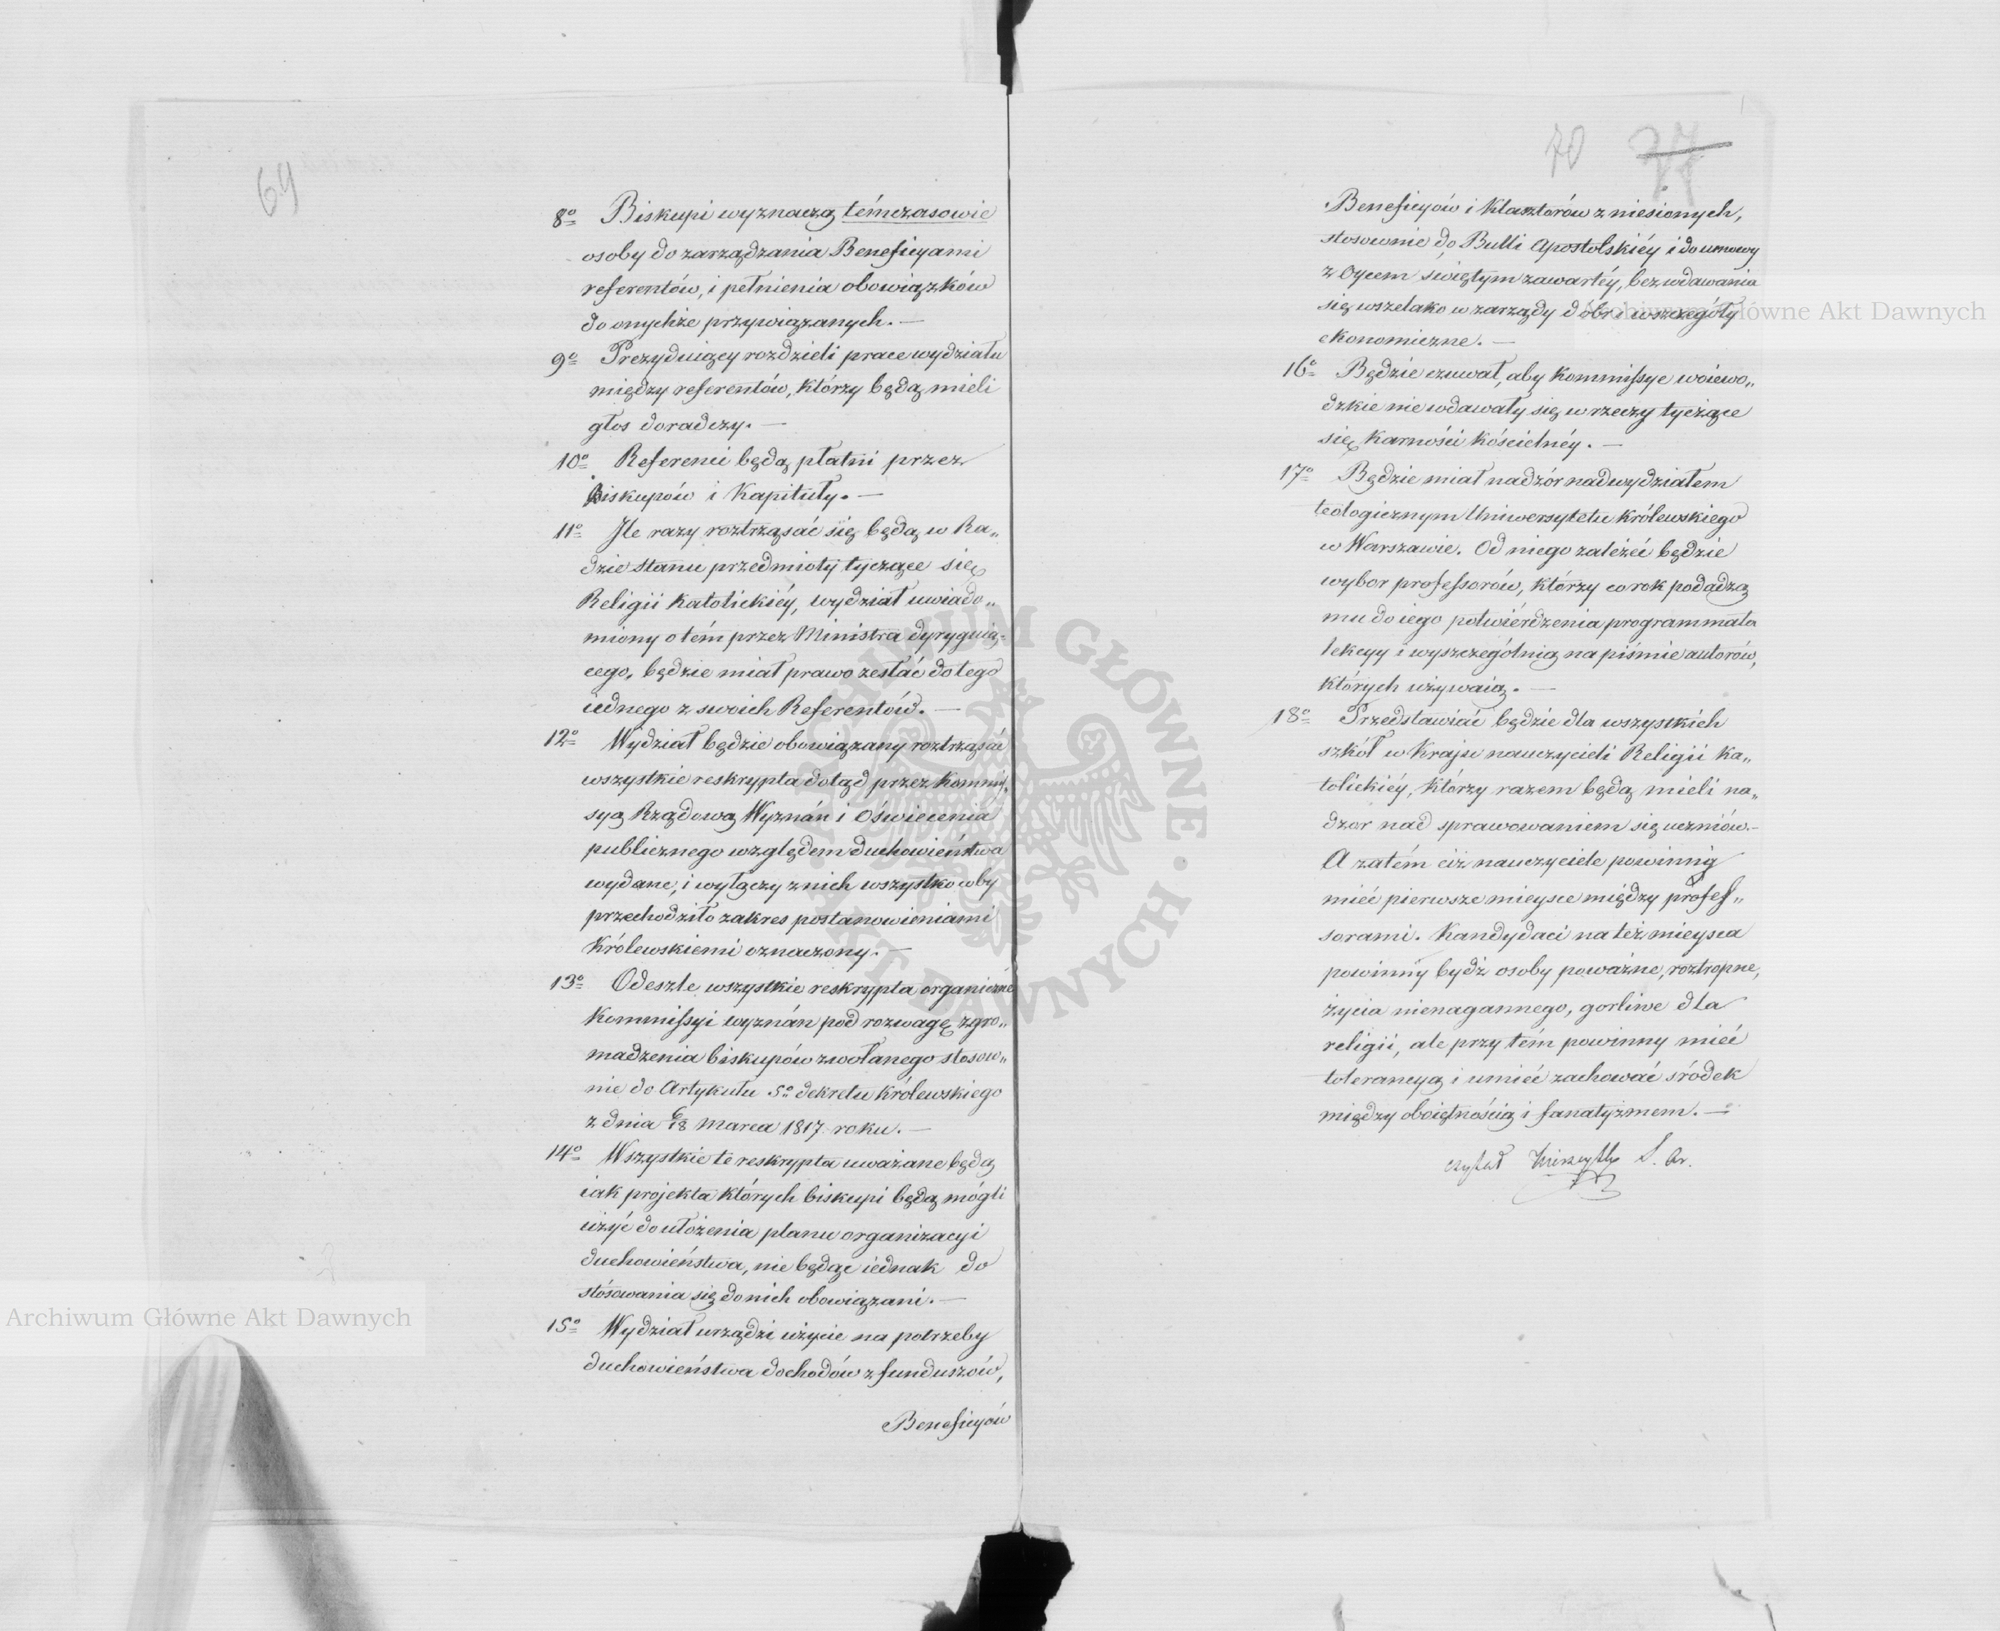 69
8o Biskupi wyznaczą témczasowie
osoby do zarządzania Beneficyami
referentów, i pełnienia obowiązków
do onychże przywiązanych. —
9o Prezyduiący rozdzieli prace wydziału
między referentów, którzy będą mieli
głos doradczy. —
10o Referenci będą płatni przez
Biskupów i Kapituły. —
11o Ile razy roztrząsać się będą w Ra„
dzie stanu przedmioty tyczące się
Religii Katolickiéy, wydział uwiado„
miony o tém przez Ministra dyryguią„
cego, będzie miał prawo zesłać do tego
iednego z swoich Referentów. —
12o Wydział będzie obowiązany roztrząsać
wszystkie reskrypta dotąd przez Kommis„
syą Rządową Wyznań i Oświecenia
publicznego względem duchowieństwa
wydane, i wyłączy z nich wszystko coby
przechodziło zakres postanowieniami
Królewskiemi oznaczony. —
13o Odeszle wszystkie reskrypta organiczne
Kommissyi wyznań pod rozwagę zgro„
madzenia biskupów zwołanego stosow„
nie do Artykułu 5o dekretu Królewskiego
z dnia 6/18 marca 1817 roku. —
14o Wszystkie te reskrypta uważane będą
iak projekta których biskupi będą mógli
użyć do ułożenia planu organizacyi
duchowieństwa, nie będąc iednak do
stósowania się do nich obowiązani. —
15o Wydział urządzi użycie na potrzeby
duchowieństwa dochodów z funduszów,
Beneficyów
70 77
Beneficyów i Klasztorów zniesionych,
stosownie do Bulli Apostolskiéy i do umowy
z Oycem świętym zawartéy, bez wdawania
się wszelako w zarządy dóbr i w szczegóły
ekonomiczne. —
16o Będzie czuwał, aby Kommissye woiewo„
dzkie nie wdawały się w rzeczy tyczące
się Karności Kościelnéy. —
17o Będzie miał nadzór nad wydziałem
teologicznym Uniwersytetu Królewskiego
w Warszawie. Od niego zależeć będzie
wybor professorów, którzy co rok podadzą
mu do iego potwiérdzenia programmata
lekcyy i wyszczególnią na piśmie autorów,
których używaią. —
18o Przedstawiać będzie dla wszystkich
szkół w Kraju nauczycieli Religii Ka„
tolickiéy, którzy razem będą mieli na„
dzor nad sprawowaniem się uczniów. —
A zatém ciż nauczyciele powinni
mieć pierwsze mieysce między profes„
sorami. Kandydaci na też mieysca
powinny bydź osoby poważne, roztropne,
życia nienagannego, gorliwe dla
religii, ale przy tém powinny mieć
tolerancyą i umieć zachować sródek
między oboiętnością i fanatyzmem. —
czytał S. Ar.
Archiwum Główne Akt Dawnych
Archiwum Główne Akt Dawnych
ARCHIWUM GŁÓWNE · AKT DAWNYCH ·